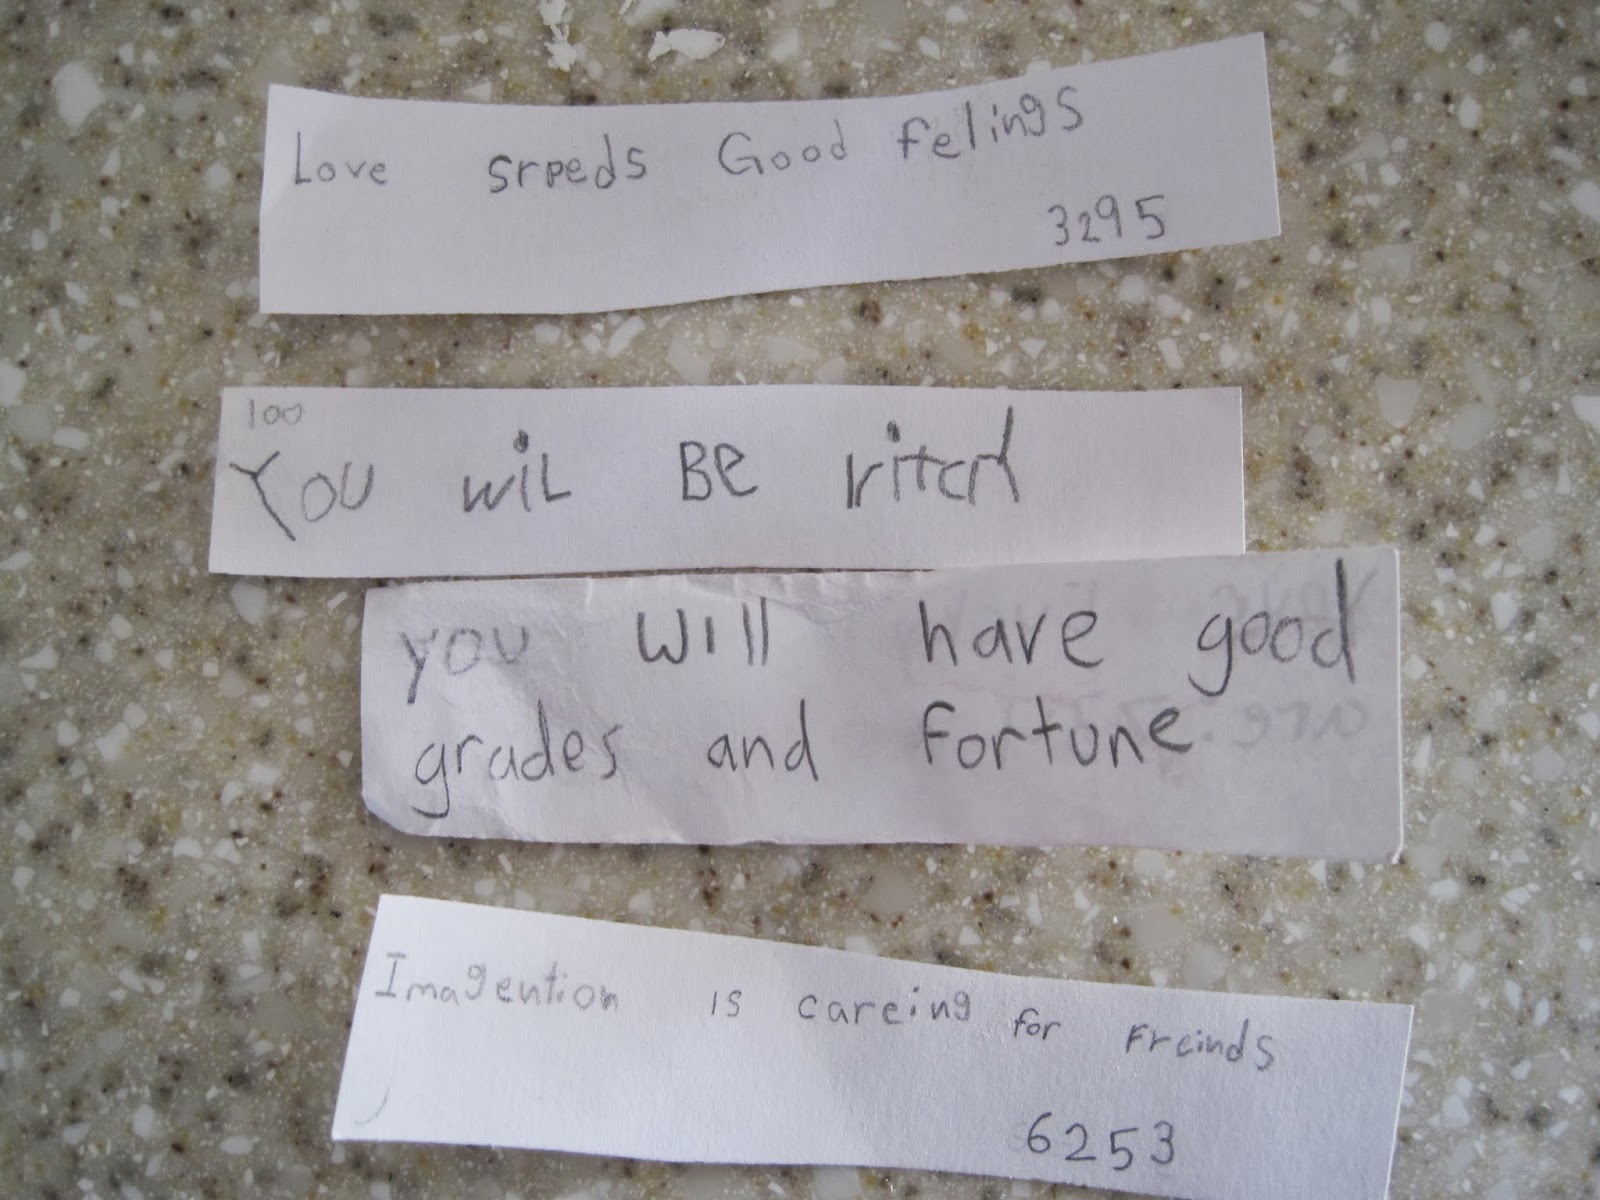 Love srpeds Good felings
3295
100
You wiL Be ritch
you will have good
grades and fortune
Imagention is careing for Freinds
6253